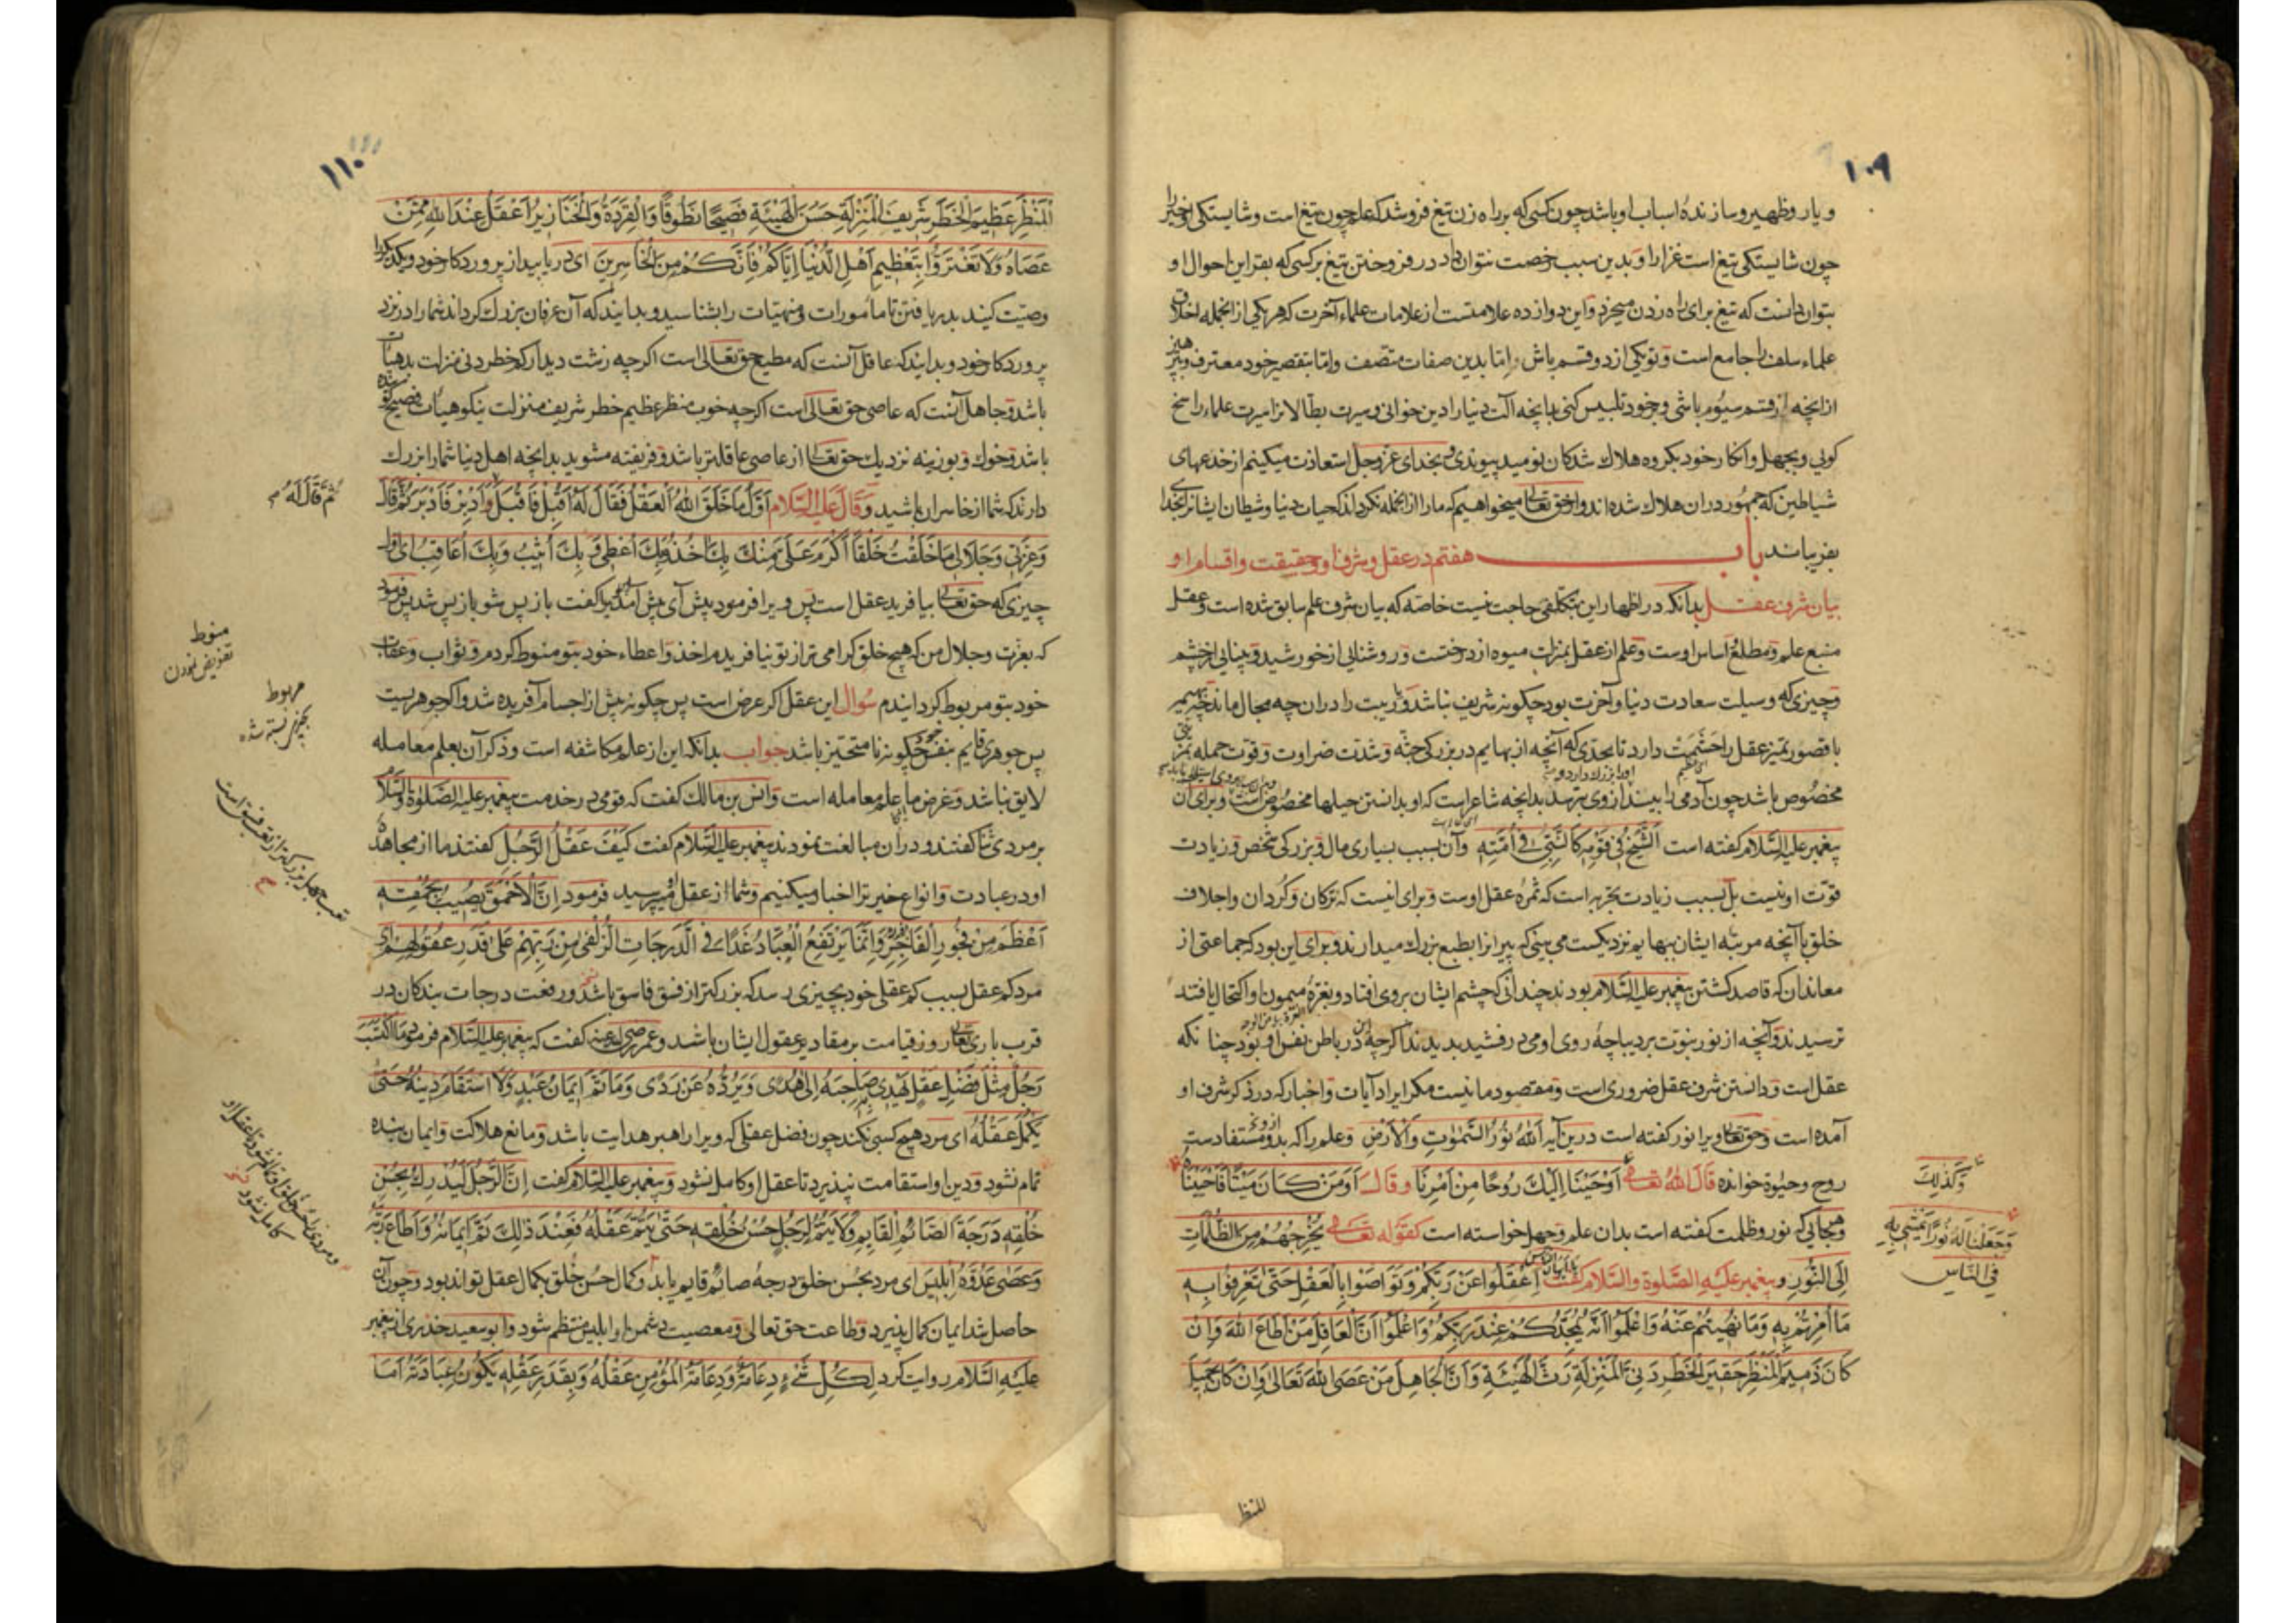 ١٠٩
و یار و ظهیر و سازنده اسباب او باشد چون کسی که بر راه زن تیغ فروشد که علم چون تیغ است و شایستگی او خیر را
چون شایستگی تیغ است غزا را و بدین سبب رخصت نتوان داد در فروختن تیغ بر کسی که بقراین احوال او
بتوان دانست که تیغ برای راه زدن میخرد و این دوازده علامتست از علامات علماء آخرت که هر یکی از آنجمله اخلاق
علماء سلف را جامع است و تو یکی از دو قسم باش اما بدین صفات متصف و اما بتقصیر خود معترف و بپرهیز
از آنچه از قسم سیوم باشی و بر خود تلبیس کنی بدانچه آلت دنیا را دین خوانی و سیرت بطالانرا سیرت علماء راسخ
گویی و بجهل و انکار خود بگروه هلاک شدگان نومید پیوندی و بخدای عز و جل استعاذت میکنیم از خدعهای
شیاطین که جمهور دران هلاک شده اند و از حق تعالی میخواهیم که ما را از آنجمله نگرداند که حیات دنیا و شیطان ایشانرا بخدا
بفریباند باب هفتم در عقل و شرف او و حقیقت و اقسام او
بیان شرف عقل بدانکه در اظهار این بتکلفی حاجت نیست خاصه که بیان شرف علم سابق شده است و عقل
منبع علم و مطلع و اساس اوست و علم از عقل بمنزلت میوه از درختست و روشنایی از خورشید و بینایی از چشم
و چیزی که وسیلت سعادت دنیا و آخرت بود چگونه شریف نباشد و ریبت را دران چه مجال ماند چه بهیمه
با قصور تمیز عقل را حشمت دارد تا بحدی که آنچه از بهایم در بزرگی جثه و شدت ضراوت و قوت حمله
مخصوص باشد چون آدمی را بیند از وی بترسد بدانچه شاعر است که او بدانستن حیلها مخصوص است و برای آن
پیغمبر علیه السلام گفته است الشَّيْخُ فِي قَوْمِهِ كَالنَّبِيِّ فِي أُمَّتِهِ و آن بسبب بسیاری مال و بزرگی شخص و زیادت
قوت او نیست بل بسبب زیادت تجربه است که ثمره عقل اوست و برای اینست که ترکان و کردان و اجلاف
خلق با آنچه مرتبه ایشان ببهایم نزدیکست می بینی که پیرانرا بطبع بزرگ میدارند و برای این بود که جماعتی از
معاندان که قاصد کشتن پیغمبر علیه السلام بودند چندانی که چشم ایشان بروی افتاد و بغره میمون او اکتحال یافتند
ترسیدند و آنچه از نور نبوت بر دیباچه روی او می درفشید بدیدند اگر چه آن در باطن نفس او بود چنانکه
عقل است و دانستن شرف عقل ضروری است و مقصود ما نیست مگر ایراد آیات و اخبار که در ذکر شرف او
آمده است و حق تعالی ویرا نور گفته است درین آیه اَللّٰهُ نُورُ السَّمٰوَاتِ وَالْأَرْضِ و علم را که بدو مستفادست
روح و حیوة خوانده قَالَ اللهُ تعالی أَوْحَيْنَا إِلَيْكَ رُوحًا مِنْ أَمْرِنَا و قال أَوَمَنْ كَانَ مَيْتًا فَأَحْيَيْنَاهُ
وَكَذٰلِكَ
و هر جایی که نور و ظلمت گفته است بدان علم و جهل خواسته است کقوله تعالی يُخْرِجُهُمْ مِنَ الظُّلُمَاتِ
وَجَعَلْنَا لَهُ نُورًا يَمْشِي بِهِ
فِي النَّاسِ
إِلَى النُّورِ و پیغمبر علیه الصلوة والسلام گفت یا أیها الناس اِعْقِلُوا عَنْ رَبِّكُمْ وَتَوَاصَوْا بِالْعَقْلِ حَتَّى تَعْرِفُوا بِهِ
مَا أُمِرْتُمْ بِهِ وَمَا نُهِيتُمْ عَنْهُ وَاعْلَمُوا أَنَّهُ يُمَجِّدُكُمْ عِنْدَ رَبِّكُمْ وَاعْلَمُوا أَنَّ الْعَاقِلَ مَنْ أَطَاعَ اللهَ وَإِنْ
كَانَ ذَمِيمَ الْمَنْظَرِ حَقِيرَ الْخَطَرِ دَنِيَّ الْمَنْزِلَةِ رَثَّ الْهَيْئَةِ وَأَنَّ الْجَاهِلَ مَنْ عَصَى اللهَ تَعَالَى وَإِنْ كَانَ جَمِيلَ
المنظر
١١٠
الْمَنْظَرِ عَظِيمَ الْخَطَرِ شَرِيفَ الْمَنْزِلَةِ حَسَنَ الْهَيْئَةِ فَصِيحًا نَطُوقًا وَالْقِرَدَةُ وَالْخَنَازِيرُ أَعْقَلُ عِنْدَ اللهِ مِمَّنْ
عَصَاهُ وَلَا تَغْتَرُّوا بِتَعْظِيمِ أَهْلِ الدُّنْيَا إِيَّاكُمْ فَإِنَّكُمْ مِنَ الْخَاسِرِينَ ای دریابید از پروردگار خود و یکدیگر را
وصیت کنید بدریافتن تا مأمورات و منهیات را بشناسید و بدانید که آن عرفان بزرگ گرداند شما را در نزد
پروردگار خود و بدانید که عاقل آنست که مطیع حق تعالی است اگر چه زشت دیدار کم خطر دنی منزلت بدهیأت
باشد و جاهل آنست که عاصی حق تعالی است اگر چه خوب منظر عظیم خطر شریف منزلت نیکو هیأت فصیح گوینده
باشد و خوک و بوزینه نزدیک حق تعالی از عاصی عاقلتر باشد و فریفته مشوید بدانچه اهل دنیا شما را بزرگ
دارند که شما از خاسران باشید و قَالَ علیه السّلام أَوَّلُ مَا خَلَقَ اللهُ الْعَقْلُ فَقَالَ لَهُ أَقْبِلْ فَأَقْبَلَ وَأَدْبِرْ فَأَدْبَرَ ثُمَّ قَالَ
ثُمَّ قَالَ لَهُ
وَعِزَّتِي وَجَلَالِي مَا خَلَقْتُ خَلْقًا أَكْرَمَ عَلَيَّ مِنْكَ بِكَ آخُذُ وَبِكَ أُعْطِي وَبِكَ أُثِيبُ وَبِكَ أُعَاقِبُ ای اول
چیزی که حق تعالی بیافرید عقل است پس ویرا فرمود پیش آی پیش آمد ویرا گفت باز پس شو باز پس شد پس فرمود
که بعزت و جلال من که هیچ خلق گرامی تر از تو نیافریدم اخذ و اعطاء خود بتو منوط کردم و ثواب و عقاب
منوط
تفویض نمودن
خود بتو مربوط گردانیدم سؤال این عقل اگر عرض است پس چگونه پیش از اجسام آفریده شد و اگر جوهریست
مربوط
بچیزی بسته شده
پس جوهری قایم بنفس خود چگونه نامتحیز باشد جواب بدانکه این از علم مکاشفه است و ذکر آن بعلم معامله
لایق نباشد و غرض ما علم معامله است و انس بن مالک گفت که قومی در خدمت پیغمبر علیه الصلوة والسلام
بر مردی ثنا گفتند و دران مبالغت نمودند پیغمبر علیه السلام گفت كَيْفَ عَقْلُ الرَّجُلِ گفتند ما از مجاهده
او در عبادت و انواع خیر ترا اخبار میکنیم و شما از عقل میپرسید فرمود إِنَّ الْأَحْمَقَ يُصِيبُ بِحُمْقِهِ
أَعْظَمَ مِنْ فُجُورِ الْفَاجِرِ وَإِنَّمَا يَرْتَفِعُ الْعِبَادُ غَدًا فِي الدَّرَجَاتِ الزُّلْفَى مِنْ رَبِّهِمْ عَلَى قَدْرِ عُقُولِهِمْ ای
مرد کم عقل بسبب کم عقلی خود بچیزی رسد که بزرگتر از فسق فاسق باشد و رفعت درجات بندگان در
قرب باری تعالی روز قیامت بر مقادیر عقول ایشان باشد و عمر رضی الله عنه گفت که پیغمبر علیه السلام فرمود مَا اكْتَسَبَ
رَجُلٌ مِثْلَ فَضْلِ عَقْلٍ يَهْدِي صَاحِبَهُ إِلَى هُدًى وَيَرُدُّهُ عَنْ رَدًى وَمَا تَمَّ إِيمَانُ عَبْدٍ وَلَا اسْتَقَامَ دِينُهُ حَتَّى
يَكْمُلَ عَقْلُهُ ای مرد هیچ کسبی نکند چون فضل عقلی که ویرا راهبر هدایت باشد و مانع هلاکت و ایمان بنده
تمام نشود و دین او استقامت نپذیرد تا عقل او کامل نشود و پیغمبر علیه السلام گفت إِنَّ الرَّجُلَ لَيُدْرِكُ بِحُسْنِ
خُلُقِهِ دَرَجَةَ الصَّائِمِ الْقَايِمِ وَلَا يَتِمُّ لِرَجُلٍ حُسْنُ خُلُقِهِ حَتَّى يَتِمَّ عَقْلُهُ فَعِنْدَ ذٰلِكَ تَمَّ إِيمَانُهُ وَأَطَاعَ رَبَّهُ
وَعَصَى عَدُوَّهُ إِبْلِيسَ ای مرد بحسن خلق درجه صائم قایم یابد و کمال حسن خلق بکمال عقل تواند بود و چون آن
حاصل شد ایمان کمال پذیرد و طاعت حق تعالی و معصیت دشمن او ابلیس منتظم شود و ابو سعید خدری از پیغمبر
علیه السلام روایت کرد لِكُلِّ شَيْءٍ دِعَامَةٌ وَدِعَامَةُ الْمُؤْمِنِ عَقْلُهُ وَبِقَدْرِ عَقْلِهِ يَكُونُ عِبَادَتُهُ أَمَا